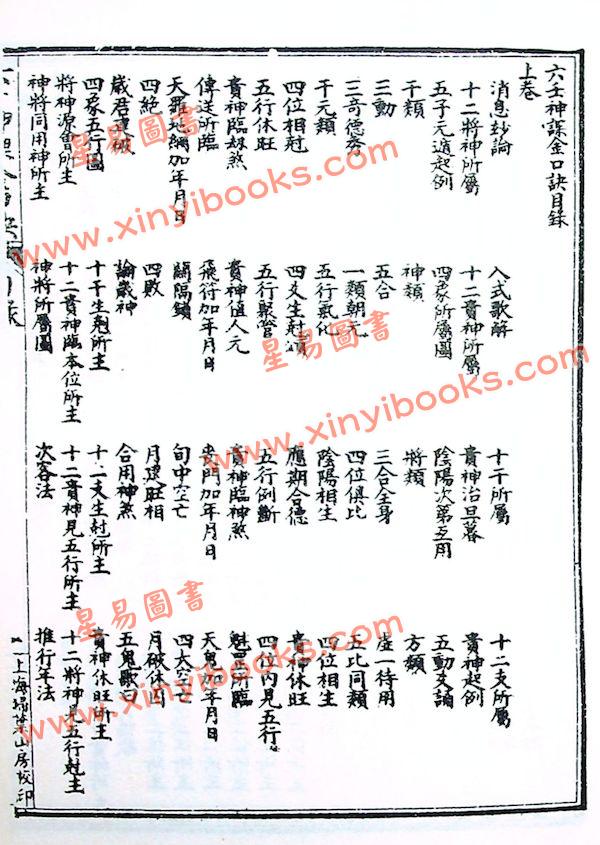 六壬神課金口訣目錄
上卷
消息妙論 入式歌解 十干所屬 十二支所屬
十二將神所屬 十二貴神所屬 貴神治旦暮 貴神起例
五子元遁起例 四象所屬圖 陰陽次第互用 五動爻論
干類 神類 將類 方類
三動 五合 三合全身 虛一待用
三奇德秀 一類朝元 四位俱比 五比同類
干元類 五行氣化 陰陽相生 四位相生
四位相尅 四爻生尅頌 應期合德 貴神休旺
五行休旺 五行聚管 五行例斷 四位內見五行
貴神臨奴煞 貴神值人元 貴神臨神煞 魁罡所臨
傳送所臨 飛符加年月日 喪門加年月日 天鬼加年月日
天羅地網加年月日 關隔鎖 旬中空亡 四大空亡
四絕 四敗 月建旺相 月破休囚
歲君 破 論歲神 合用神煞 五鬼歌曰
四象五行圖 十干生尅所主 十二支生尅所主 貴神休旺所主
將神源會所主 十二貴神臨本位所主 十二貴神見五行所主 十二將神見五行尅主
神將同用神所主 神將所屬圖 次客法 推行年法
目錄
一 上海埽葉山房校印
星易圖書
www.xinyibooks.com
星易圖書
www.xinyibooks.com
www.xinyibooks.com
星易圖書
www.xinyibooks.com